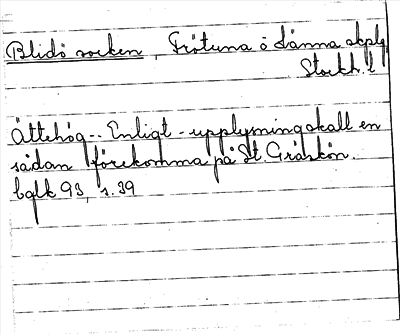 Blidö socken, Frötuna o Länna skplg
Stockh. l
Ättehög -- Enligt - upplysning skall en
sådan förekomma på St. Gräskön.
bqlk 93, s. 39